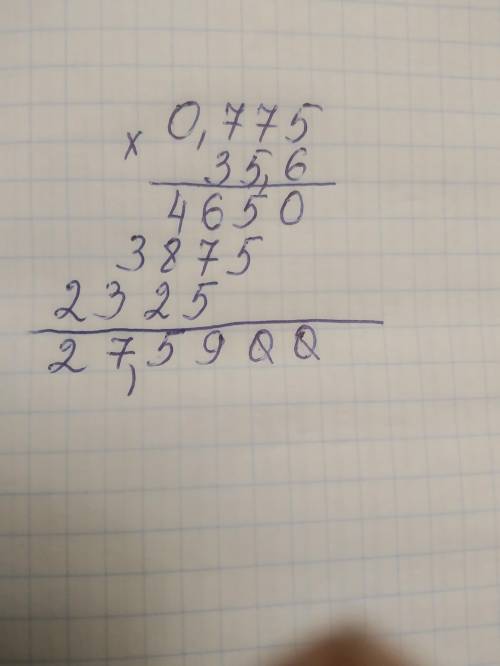 0,775
× 35,6
4650
3875
2325
27,5900